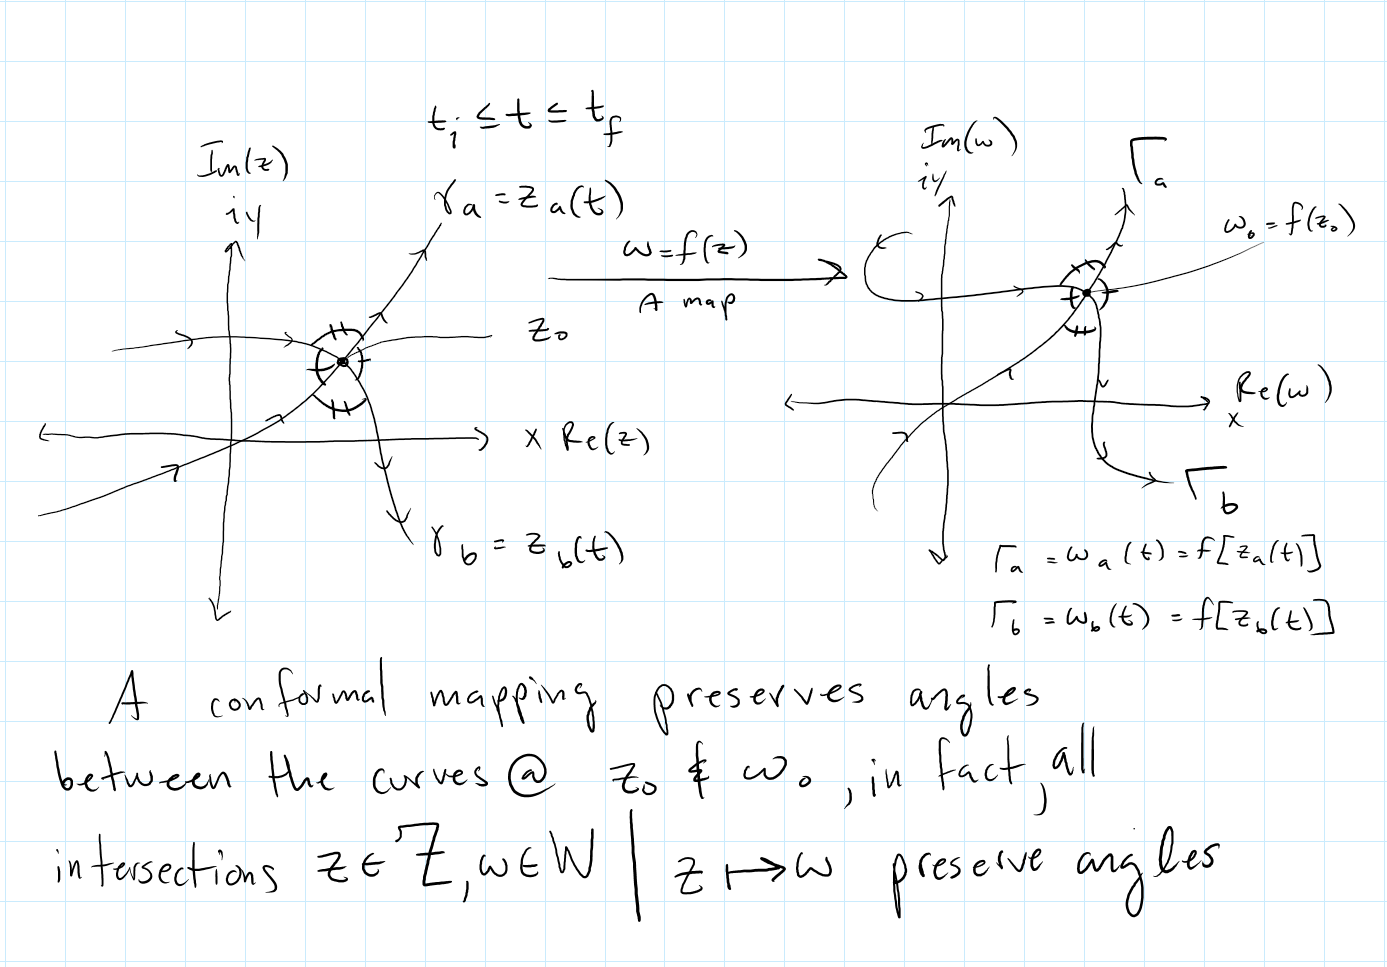 tᵢ ≤ t ≤ t_f
Im(z)
iy
γₐ = zₐ(t)
z₀
x Re(z)
γ_b = z_b(t)
ω=f(z)
A map
Im(ω)
iy
Γₐ
ω₀ = f(z₀)
Re(ω)
x
Γ_b
Γₐ = ωₐ(t) = f[zₐ(t)]
Γ_b = ω_b(t) = f[z_b(t)]
A conformal mapping preserves angles
between the curves @ z₀ & ω₀, in fact, all
intersections z ∈ Z, ω ∈ W | z ↦ ω preserve angles